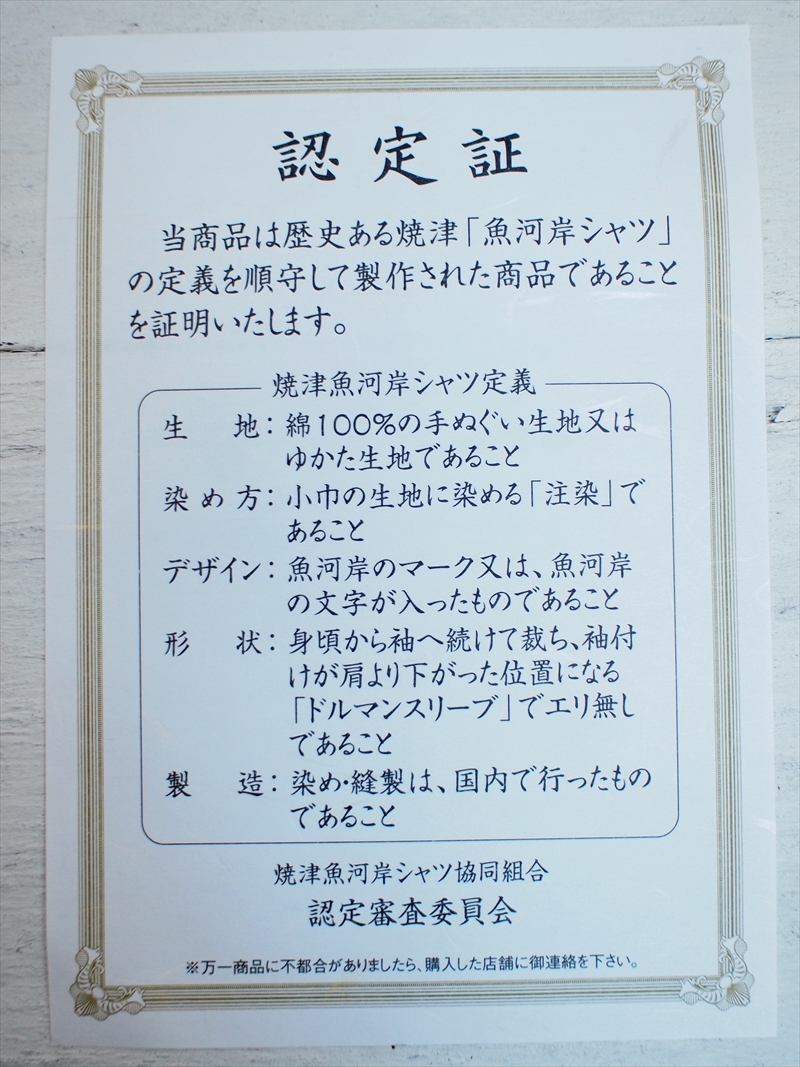 認定証
当商品は歴史ある焼津「魚河岸シャツ」
の定義を順守して製作された商品であること
を証明いたします。
焼津魚河岸シャツ定義
生地：綿100%の手ぬぐい生地又は
ゆかた生地であること
染め方：小巾の生地に染める「注染」で
あること
デザイン：魚河岸のマーク又は、魚河岸
の文字が入ったものであること
形状：身頃から袖へ続けて裁ち、袖付
けが肩より下がった位置になる
「ドルマンスリーブ」でエリ無し
であること
製造：染め・縫製は、国内で行ったもの
であること
焼津魚河岸シャツ協同組合
認定審査委員会
※万一商品に不都合がありましたら、購入した店舗に御連絡を下さい。